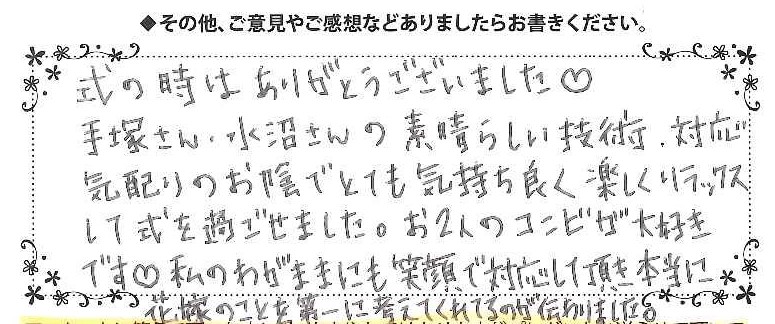 ◆その他、ご意見やご感想などありましたらお書きください。
式の時はありがとうございました♡
手塚さん、水沼さんの素晴らしい技術、対応
気配りのお陰でとても気持ち良く楽しくリラックス
して式を過ごせました。お2人のコンビが大好き
です♡私のわがままにも笑顔で対応して頂き本当に
花嫁のことを第一に考えてくれてるのが伝わりました。